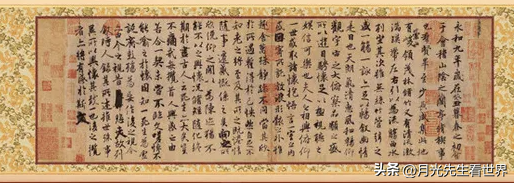 永和九年歲在癸丑暮春之初會
于會稽山陰之蘭亭脩禊事
也羣賢畢至少長咸集此地
有崇山峻領茂林脩竹又有清流激
湍暎帶左右引以為流觴曲水
列坐其次雖無絲竹管弦之
盛一觴一詠亦足以暢敘幽情
是日也天朗氣清惠風和暢仰
觀宇宙之大俯察品類之盛
所以遊目騁懷足以極視聽之
娛信可樂也夫人之相與俯仰
一世或取諸懷抱悟言一室之內
或因寄所託放浪形骸之外雖
趣舍萬殊靜躁不同當其欣
於所遇暫得於己怏然自足不
知老之將至及其所之既惓情
隨事遷感慨係之矣向之所
欣俛仰之間以為陳迹猶不
能不以之興懷況脩短隨化終
期於盡古人云死生亦大矣豈
不痛哉每攬昔人興感之由
若合一契未嘗不臨文嗟悼不
能喻之於懷固知一死生為虛
誕齊彭殤為妄作後之視今
亦由今之視昔悲夫故列
敘時人錄其所述雖世殊事
異所以興懷其致一也後之攬
者亦將有感於斯文
头条 @月光先生看世界